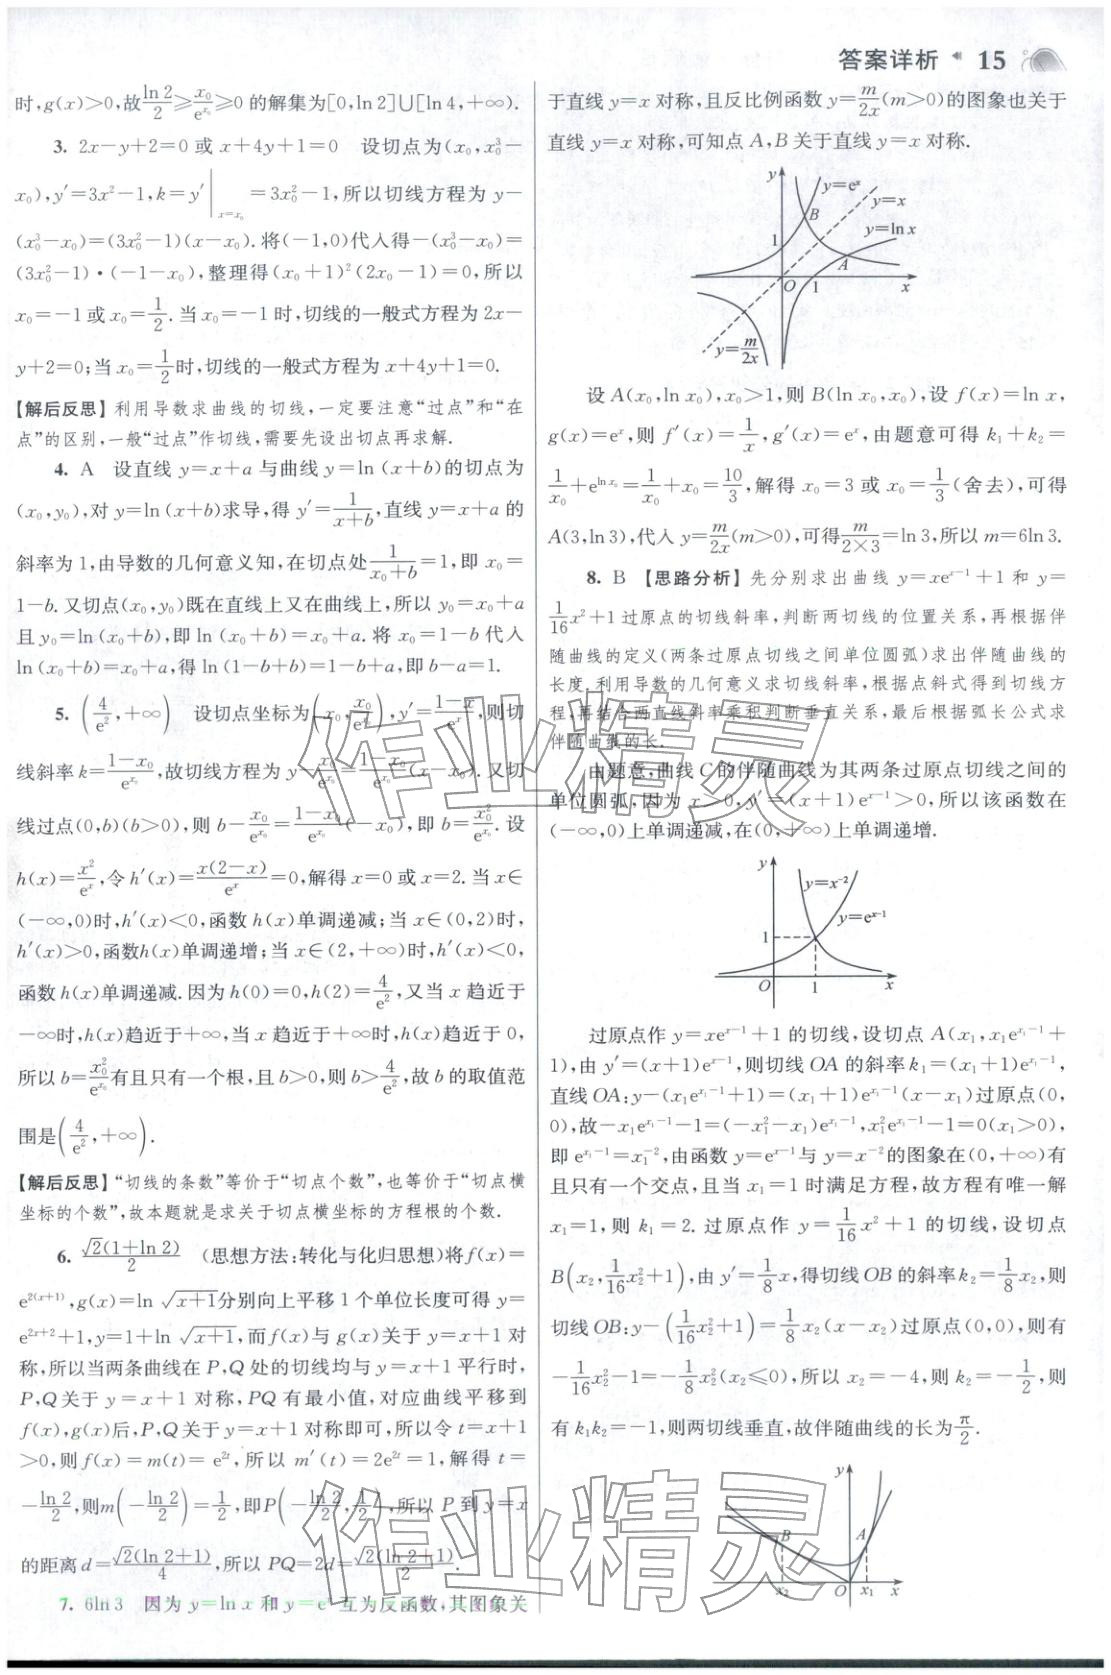 答案详析 15
时,g(x)>0,故ln 2/2≥x₀/e^{x₀}≥0的解集为[0,ln 2]∪[ln 4,+∞).
3. 2x-y+2=0或x+4y+1=0 设切点为(x₀,x₀³-
x₀),y′=3x²-1,k=y′|_{x=x₀}=3x₀²-1,所以切线方程为 y-
(x₀³-x₀)=(3x₀²-1)(x-x₀).将(-1,0)代入得-(x₀³-x₀)=
(3x₀²-1)·(-1-x₀),整理得(x₀+1)²(2x₀-1)=0,所以
x₀=-1或x₀=1/2.当x₀=-1时,切线的一般式方程为2x-
y+2=0;当x₀=1/2时,切线的一般式方程为x+4y+1=0.
【解后反思】利用导数求曲线的切线,一定要注意“过点”和“在
点”的区别,一般“过点”作切线,需要先设出切点再求解.
4. A 设直线 y=x+a 与曲线 y=ln (x+b)的切点为
(x₀,y₀),对y=ln (x+b)求导,得y′=1/(x+b),直线y=x+a的
斜率为1,由导数的几何意义知,在切点处1/(x₀+b)=1,即 x₀=
1-b.又切点(x₀,y₀)既在直线上又在曲线上,所以y₀=x₀+a
且y₀=ln (x₀+b),即ln (x₀+b)=x₀+a.将 x₀=1-b代入
ln (x₀+b)=x₀+a,得ln (1-b+b)=1-b+a,即b-a=1.
5. (4/e²,+∞) 设切点坐标为(x₀,x₀/e^{x₀}),y′=(1-x)/e^x,则切
线斜率k=(1-x₀)/e^{x₀},故切线方程为y-x₀/e^{x₀}=(1-x₀)/e^{x₀}(x-x₀).又切
线过点(0,b)(b>0),则b-x₀/e^{x₀}=(1-x₀)/e^{x₀}(-x₀),即b=x₀²/e^{x₀}.设
h(x)=x²/e^x,令h′(x)=x(2-x)/e^x=0,解得x=0或x=2.当x∈
(-∞,0)时,h′(x)<0,函数h(x)单调递减;当x∈(0,2)时,
h′(x)>0,函数h(x)单调递增;当x∈(2,+∞)时,h′(x)<0,
函数h(x)单调递减.因为h(0)=0,h(2)=4/e²,又当x趋近于
-∞时,h(x)趋近于+∞,当x趋近于+∞时,h(x)趋近于0,
所以b=x₀²/e^{x₀}有且只有一个根,且b>0,则b>4/e²,故b的取值范
围是(4/e²,+∞).
【解后反思】“切线的条数”等价于“切点个数”,也等价于“切点横
坐标的个数”,故本题就是求关于切点横坐标的方程根的个数.
6. √2(1+ln 2)/2 (思想方法:转化与化归思想)将f(x)=
e^{2(x+1)},g(x)=ln √(x+1)分别向上平移1个单位长度可得y=
e^{2x+2}+1,y=1+ln √(x+1),而f(x)与g(x)关于y=x+1对
称,所以当两条曲线在P,Q处的切线均与y=x+1平行时,
P,Q关于y=x+1对称,PQ有最小值,对应曲线平移到
f(x),g(x)后,P,Q关于y=x+1对称即可,所以令t=x+1
>0,则f(x)=m(t)= e^{2t},所以 m′(t)=2e^{2t}=1,解得t=
-ln 2/2,则m(-ln 2/2)=1/2,即P(-ln 2/2,1/2),所以P到y=x
的距离d=√2(ln 2+1)/4,所以PQ=2d=√2(ln 2+1)/2.
7. 6ln 3 因为y=ln x和y=e^x互为反函数,其图象关
于直线y=x对称,且反比例函数y=m/2x(m>0)的图象也关于
直线y=x对称,可知点A,B关于直线y=x对称.
y
y=e^x
y=x
B
y=ln x
1
A
O 1 x
y=m/2x
设A(x₀,ln x₀),x₀>1,则B(ln x₀,x₀),设f(x)=ln x,
g(x)=e^x,则f′(x)=1/x,g′(x)=e^x,由题意可得k₁+k₂=
1/x₀+e^{ln x₀}=1/x₀+x₀=10/3,解得x₀=3或x₀=1/3(舍去),可得
A(3,ln 3),代入y=m/2x(m>0),可得m/(2×3)=ln 3,所以m=6ln 3.
8. B 【思路分析】先分别求出曲线 y=xe^{x-1}+1和y=
1/16x²+1过原点的切线斜率,判断两切线的位置关系,再根据伴
随曲线的定义(两条过原点切线之间单位圆弧)求出伴随曲线的
长度.利用导数的几何意义求切线斜率,根据点斜式得到切线方
程,再结合两直线斜率乘积判断垂直关系,最后根据弧长公式求
伴随曲线的长.
由题意,曲线C的伴随曲线为其两条过原点切线之间的
单位圆弧,因为 x>0,y′=(x+1)e^{x-1}>0,所以该函数在
(-∞,0)上单调递减,在(0,+∞)上单调递增.
y
y=x⁻²
y=e^{x-1}
1
O 1 x
过原点作y=xe^{x-1}+1的切线,设切点A(x₁,x₁e^{x₁-1}+
1),由y′=(x+1)e^{x-1},则切线OA的斜率k₁=(x₁+1)e^{x₁-1},
直线OA:y-(x₁e^{x₁-1}+1)=(x₁+1)e^{x₁-1}(x-x₁)过原点(0,
0),故-x₁e^{x₁-1}-1=(-x₁²-x₁)e^{x₁-1},x₁²e^{x₁-1}-1=0(x₁>0),
即e^{x₁-1}=x₁⁻²,由函数y=e^{x-1}与y=x⁻²的图象在(0,+∞)有
且只有一个交点,且当x₁=1时满足方程,故方程有唯一解
x₁=1,则 k₁=2.过原点作 y=1/16x²+1的切线,设切点
B(x₂,1/16x₂²+1),由y′=1/8x,得切线OB的斜率k₂=1/8x₂,则
切线OB:y-(1/16x₂²+1)=1/8x₂(x-x₂)过原点(0,0),则有
-1/16x₂²-1=-1/8x₂²(x₂≤0),所以x₂=-4,则k₂=-1/2,则
有k₁k₂=-1,则两切线垂直,故伴随曲线的长为π/2.
y
B A
x₂ O x₁ x
作业精灵
作业精灵